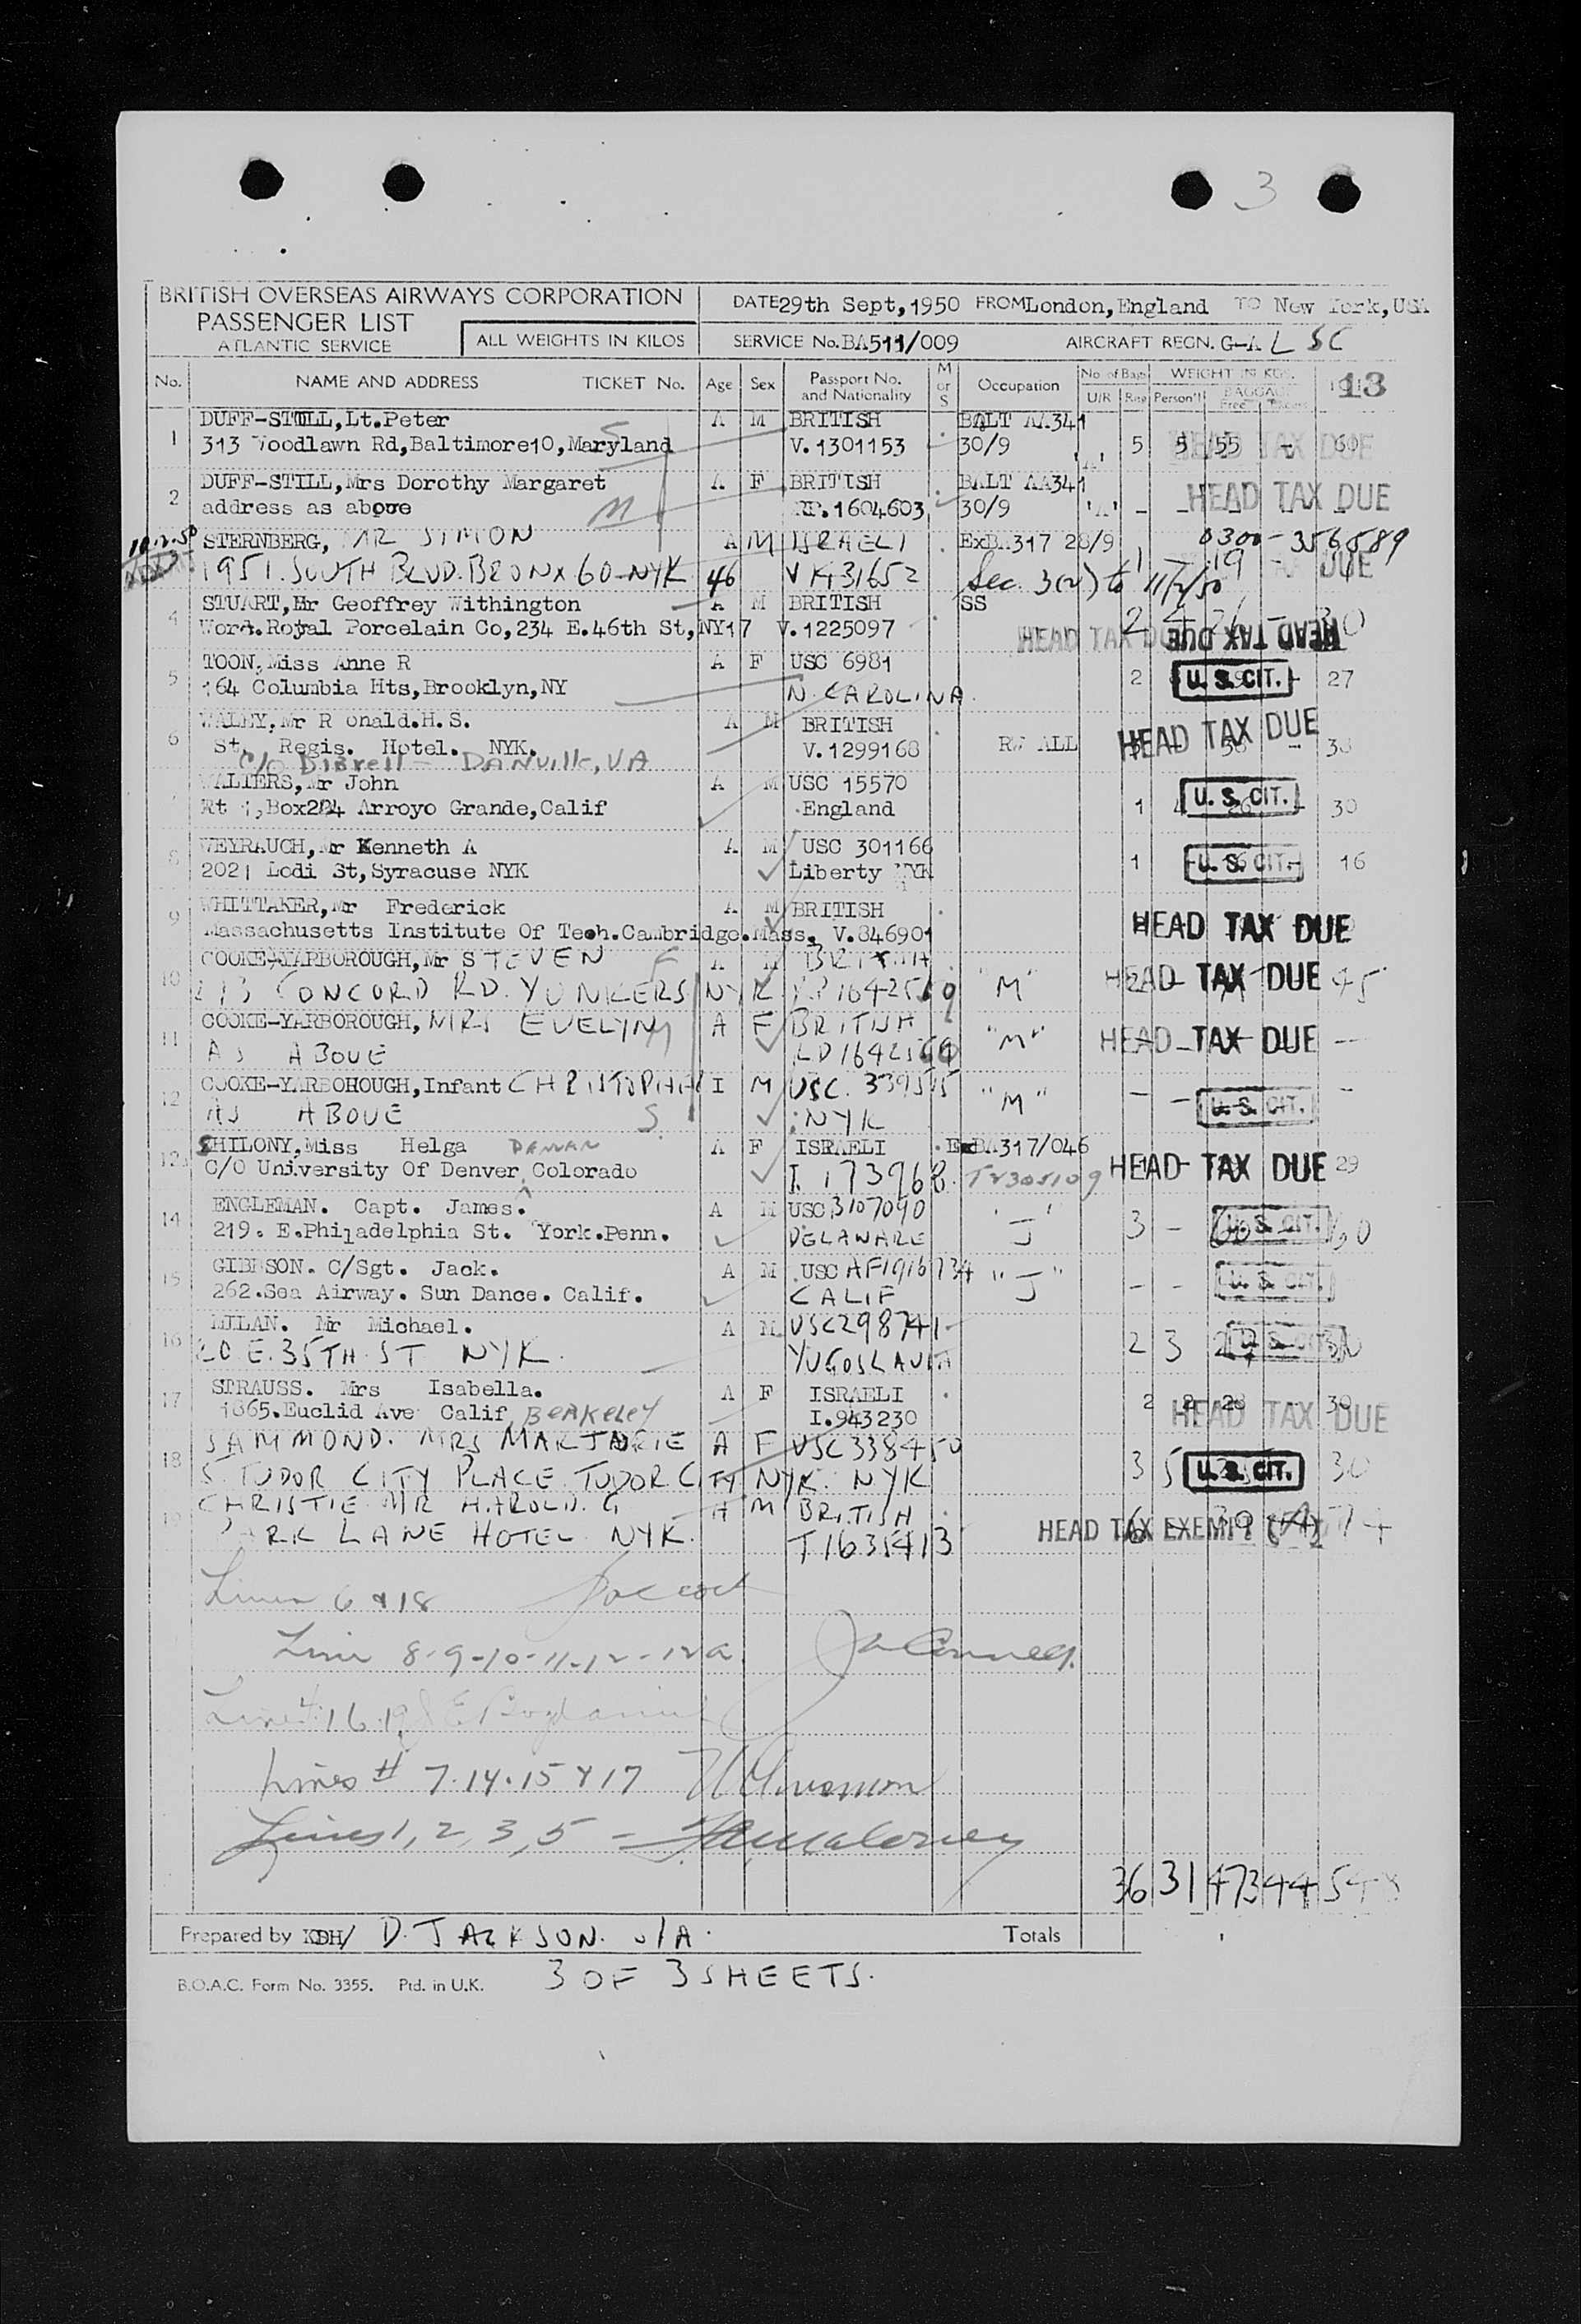 3
BRITISH OVERSEAS AIRWAYS CORPORATION
PASSENGER LIST
ATLANTIC SERVICE
ALL WEIGHTS IN KILOS
DATE 29th Sept, 1950 FROM London, England TO New York, USA
SERVICE No. BA511/009 AIRCRAFT REGN. G-A L SC
No. NAME AND ADDRESS TICKET No. Age Sex Passport No. and Nationality M or S Occupation No. of Bags U/R Reg Person'l WEIGHT IN KGS. BAGGAGE Free 13
1 DUFF-STILL, Lt. Peter A M BRITISH BALT AA341
313 Woodlawn Rd, Baltimore10, Maryland V.1301153 30/9 5 5 55 - 60 HEAD TAX DUE
2 DUFF-STILL, Mrs Dorothy Margaret A F BRITISH BALT AA341
address as above M RP.1604603 30/9 HEAD TAX DUE
STERNBERG, MR SIMON A M ISRAELI ExBA317 28/9 0300-356589
1951. SOUTH BLVD. BRONX 60-NYK 46 VK 31652 Sec. 3(2) to 11/2/50 1 - 19 DUE
4 STUART, Mr Geoffrey Withington A M BRITISH SS
Worc. Royal Porcelain Co, 234 E.46th St, NY17 V.1225097 2 4 26 - 30 HEAD TAX DUE HEAD TAX DUE
5 TOON, Miss Anne R A F USC 6981
164 Columbia Hts, Brooklyn, NY N. CAROLINA 2 U.S. CIT. 27
6 WALBY, Mr R onald.H.S. A M BRITISH
St. Regis. Hotel. NYK. V.1299168 RW ALL HEAD TAX DUE
C/O Dibrell - DANville, VA
WALTERS, Mr John A M USC 15570
Rt 1, Box224 Arroyo Grande, Calif England 1 4 26 - 30 U.S. CIT.
8 WEYRAUCH, Mr Kenneth A A M USC 301166
2021 Lodi St, Syracuse NYK Liberty NYK 1 - 16 - 16 U.S. CIT.
9 WHITTAKER, Mr Frederick A M BRITISH
Massachusetts Institute Of Tech. Cambridge. Mass. V.846901 HEAD TAX DUE
10 COOKE-YARBOROUGH, Mr STEVEN A M BRITISH
CONCORD RD. YONKERS NYK "M" HEAD TAX DUE 45
11 COOKE-YARBOROUGH, MRS EVELYN M A F BRITISH
AS ABOVE "M" HEAD TAX DUE
12 COOKE-YARBOHOUGH, Infant CHRISTOPHER I M USC. 339515
AS ABOVE S. NYK "M" - - U.S. CIT.
12a SHILONY, Miss Helga A F ISRAELI ExBA317/046
C/O University Of Denver Colorado I. 173968 HEAD TAX DUE 29
14 ENGLEMAN. Capt. James. A M USC 3107090
219. E.Philadelphia St. York.Penn. DELAWARE "J" 3 - 60 U.S. CIT. 60
15 GIBBSON. C/Sgt. Jack. A M USC AF1916734
262.Sea Airway. Sun Dance. Calif. CALIF "J" - - U.S. CIT.
16 MILAN. Mr Michael. A M USC298741
20 E. 35TH ST NYK. YUGOSLAVIA 2 3 27 U.S. CIT. 30
17 STRAUSS. Mrs Isabella. A F ISRAELI
1865.Euclid Ave Calif BERKELEY I.943230 2 2 28 - 30 HEAD TAX DUE
18 SAMMOND. MRS MARJORIE A F USC 338450
5 TUDOR CITY PLACE TUDOR CITY NYK. NYK 3 5 U.S. CIT. 30
19 CHRISTIE MR HAROLD. G A M BRITISH
PARK LANE HOTEL NYK. T1635413 6 HEAD TAX EXEMPT 74
Lines 6 & 18
Line 8-9-10-11-12-12a
Line 4. 16. 19
Lines # 7.14.15 & 17
Lines 1, 2, 3, 5 -
36 31 473 44 548
Prepared by KDH/ D. JACKSON. Totals
B.O.A.C. Form No. 3355. Ptd. in U.K.
3 OF 3 SHEETS.